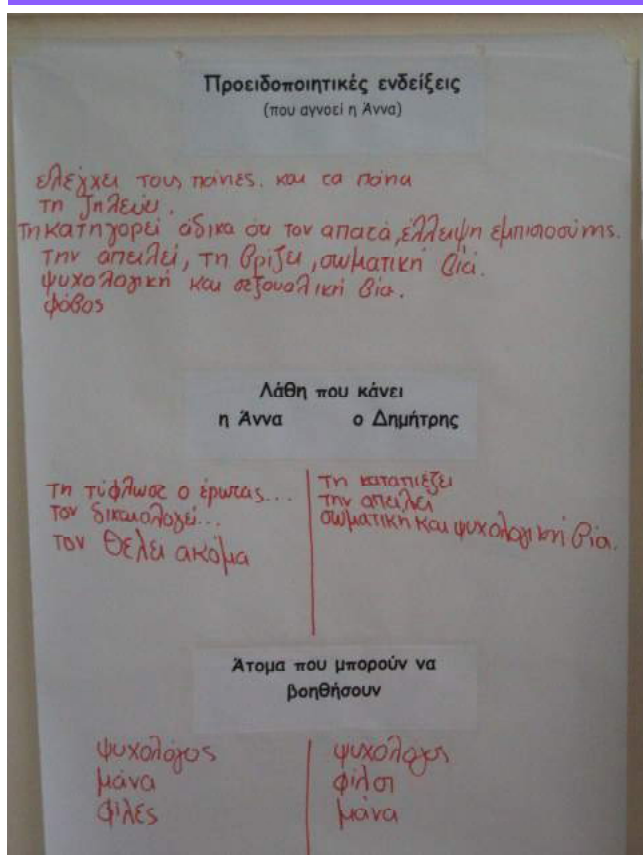 Προειδοποιητικές ενδείξεις
(που αγνοεί η Άννα)
ελέγχει τους πάντες. και τα πάντα
τη ζηλεύει.
τη κατηγορεί άδικα ότι τον απατά, έλλειψη εμπιστοσύνης.
την απειλεί, τη βρίζει, σωματική βία.
ψυχολογική και σεξουαλική βία.
φόβος
Λάθη που κάνει
η Άννα ο Δημήτρης
τη τύφλωσε ο έρωτας... τη καταπιέζει
τον δικαιολογεί... την απειλεί
τον θέλει ακόμα σωματική και ψυχολογική βία.
Άτομα που μπορούν να
βοηθήσουν
ψυχολόγος ψυχολόγος
μάνα φίλοι
φίλες μάνα